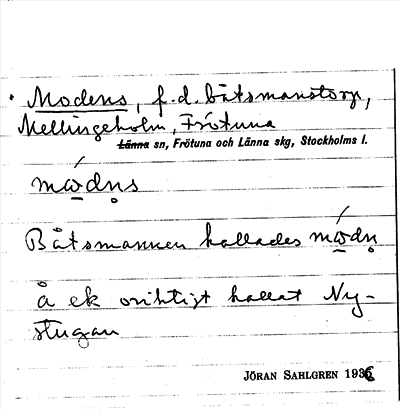 Modens, f.d. båtsmanstorp,
Mellingeholm, Frötuna
Länna sn, Frötuna och Länna skg, Stockholms l.
mωdn̥s
Båtsmannen kallades mωdn̥
å ek oriktigt kallat Ny-
stugan
JÖRAN SAHLGREN 1936